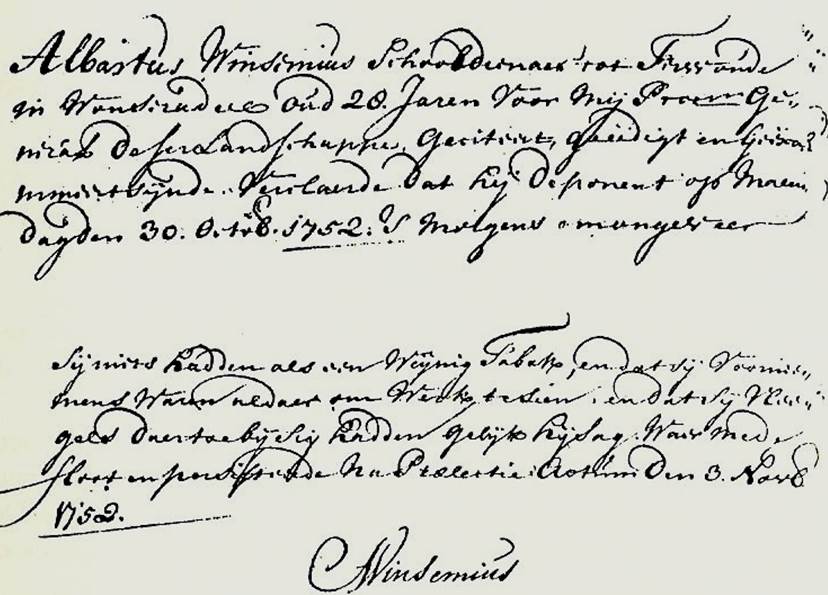 Albartus Winsemius Schooldienaer tot Ferwoude
in Wonseradeel Oud 28. Jaren Voor Mij Procur Ge„
neraal deser Landschappe, Geciteert, geëdigt en Geixa„
mineert sijnde. Verclaerde dat hij deponent op Maen„
dag den 30. Octob. 1752. 's Morgens omongeveer
Sij niets hadden als een Weijnig Taback, en dat sij Voorne„
mens Waren aldaer om Werk te sien, en dat sij Vlee„
gels daertoe bij sig hadden gelijk hij sag. Waer mede
sloot en persisteerde Na Prælectie. Actum Den 3. Novb
1752.
Winsemius